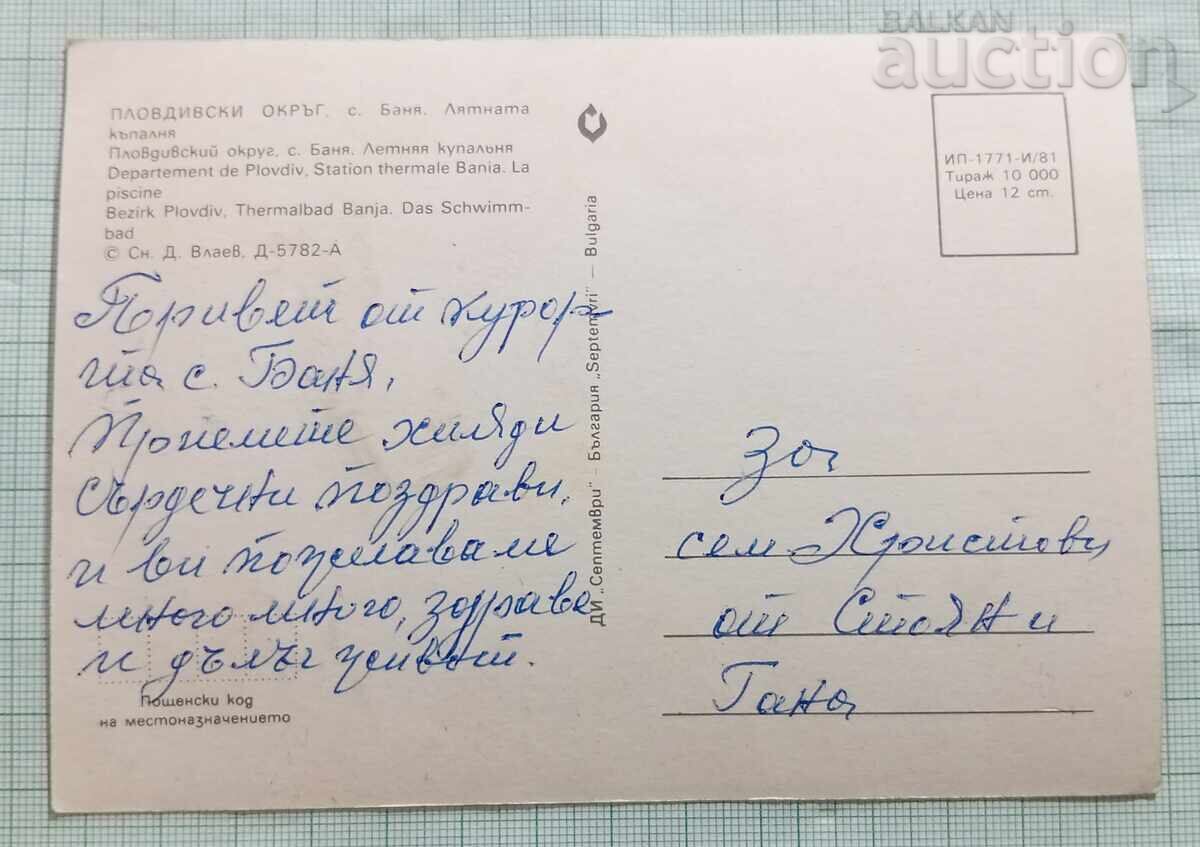 BALKAN
auction
ПЛОВДИВСКИ ОКРЪГ. с. Баня. Лятната
къпалня
Пловдивский округ, с. Баня. Летняя купальня
Departement de Plovdiv, Station thermale Bania. La
piscine
Bezirk Plovdiv, Thermalbad Banja. Das Schwimm-
bad
© Сн. Д. Влаев, Д-5782-А
Поривят от курор-
та с. Баня,
Приемете хиляди
сърдечни поздрави,
и ви пожелаваме
много много, здраве
и дълъг живот.
Пощенски код
на местоназначението
ДИ „Септември" – България „Septemvri" – Bulgaria
ИП-1771-И/81
Тираж 10 000
Цена 12 ст.
За
сем Христови
от Стоян и
Гана